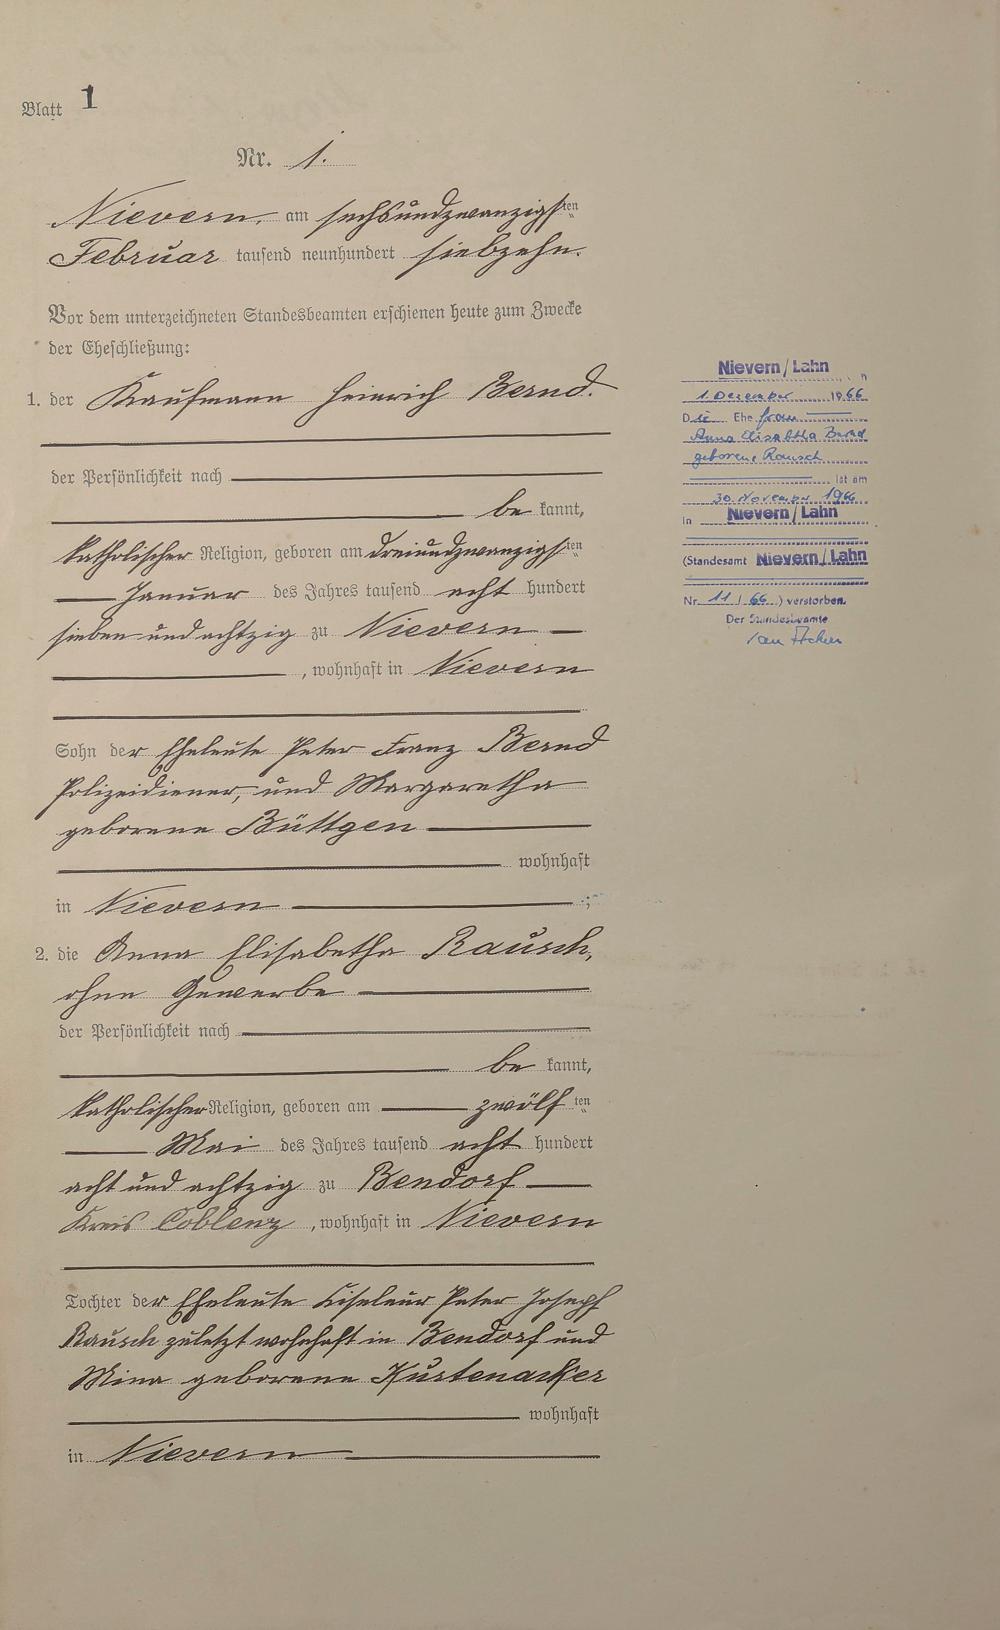 Blatt 1
Nr. 1.
Nievern, am sechsundzwanzigsten
Februar tausend neunhundert siebzehn.
Vor dem unterzeichneten Standesbeamten erschienen heute zum Zwecke
der Eheschließung:
1. der Kaufmann Heinrich Bernd.
der Persönlichkeit nach
be kannt,
katholischer Religion, geboren am dreiundzwanzigsten
Januar des Jahres tausend acht hundert
sieben und achtzig zu Nievern
, wohnhaft in Nievern
Sohn der Eheleute Peter Franz Bernd
Polizeidiener, und Margaretha
geborene Büttgen
wohnhaft
in Nievern ;
2. die Anna Elisabetha Rausch,
ohne Gewerbe
der Persönlichkeit nach
be kannt,
katholischer Religion, geboren am zwölf ten
Mai des Jahres tausend acht hundert
acht und achtzig zu Bendorf
Kreis Coblenz , wohnhaft in Nievern
Tochter der Eheleute Peter Joseph
Rausch zuletzt wohnhaft in Bendorf und
Mina geborene Kurtenacker
wohnhaft
in Nievern
Nievern/Lahn
1. Dezember 1966
Die Ehefrau
Anna Elisabetha Bernd
geborene Rausch
ist am
30. November 1966
in Nievern/Lahn
(Standesamt Nievern/Lahn
Nr. 11 / 66 ) verstorben.
Der Standesbeamte